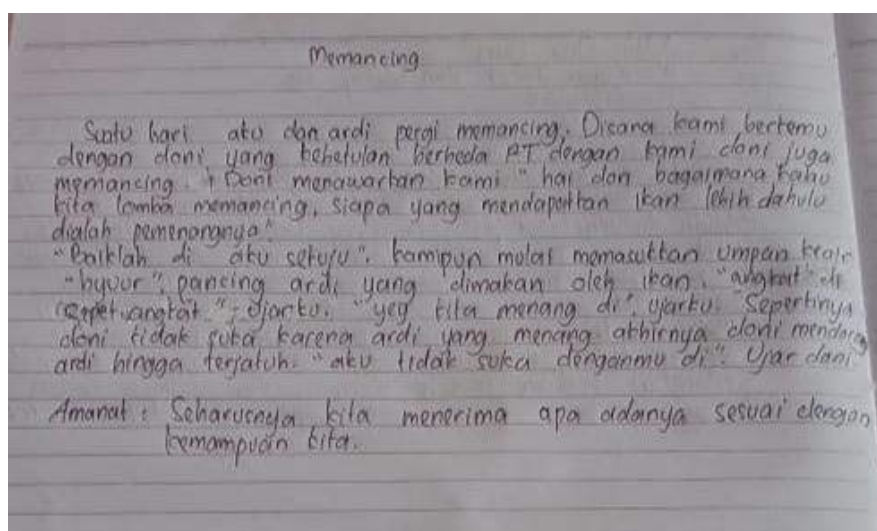 Memancing
Suatu hari aku dan ardi pergi memancing. Disana kami bertemu
dengan doni yang kebetulan berbeda RT dengan kami doni juga
memancing. Doni menawarkan kami "hai dan bagaimana kalau
kita lomba memancing, siapa yang mendapatkan ikan lebih dahulu
dialah pemenangnya"
"Baiklah di aku setuju". kamipun mulai memasukkan umpan keair
"byuur", pancing ardi yang dimakan oleh ikan. "angkat di
cepet angkat." Ujarku. "yey kita menang di", ujarku. Sepertinya
doni tidak suka karena ardi yang menang akhirnya doni mendorong
ardi hingga terjatuh. "aku tidak suka denganmu di". Ujar doni
Amanat : Seharusnya kita menerima apa adanya sesuai dengan
kemampuan kita.